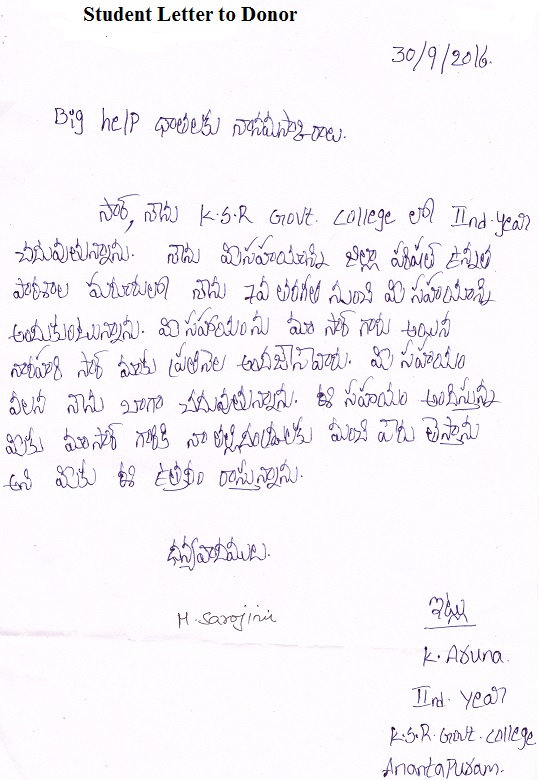 Student Letter to Donor
30/9/2016.
Big help దాతలకు నానమస్కారాలు.
సార్, నేను K.S.R Govt. College లో IInd. year
చదువుతున్నాను. నేను మీసహాయాన్ని జిల్లా పరిషత్ ఉన్నత
పాఠశాల నేను 7వ తరగతి నుంచి మీ సహాయాన్ని
అందుకుంటున్నాను. మీ సహాయంను మా సార్ గారు అయిన
నారహరి సార్ మాకు ప్రతినెల అందజేసేవారు. మీ సహాయం
వలన నేను బాగా చదువుతున్నాను. ఈ సహాయం అందిస్తున్న
మీకు మాసార్ గారికి నా తల్లిదండ్రులకు మంచి పేరు తెస్తాను
అని మీకు ఈ ఉత్తరం రాస్తున్నాను.
ధన్యవాదములు.
M. Sarojini
ఇట్లు
K. Aruna.
IInd. year
K.S.R. Govt. college
Anantapuram.